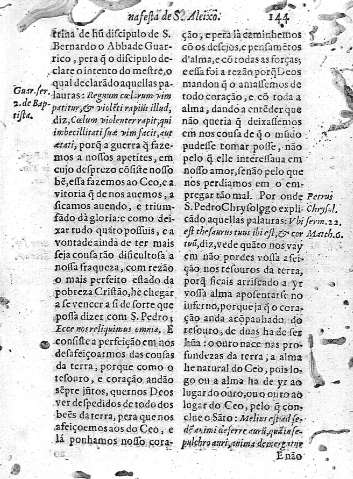 na festa de S. Aleixo. 144
trina de hũ discipulo de S.
Bernardo o Abbade Guar-
rico, pera q̃ o discipulo de-
clare o intento do mestre, o
qual declarãdo aquellas pa-
Guar. ser.
2. de Bap
tista.
lauras: Regnum cælorum vim
patitur, & violẽti rapiũt illud,
diz, Cælum violenter rapit, qui
imbecillitati suæ vim facit, aut
ætati, porq̃ a guerra q̃ faze-
mos a nossos apetites, em
cujo desprezo cõsiste nosso
bẽ, essa fazemos ao Ceo, e a
vitoria q̃ de nos auemos, a
ficamos auendo, e triumf-
sado da gloria: e como dei-
xar tudo quãto possuis, e a
vontade ainda de ter mais
seja cousa tão dificultosa a
nossa fraqueza, com rezão
o mais perfeito estado da
pobreza Cristão, he chegar
a se vencer a si de sorte que
possa dizer com S. Pedro;
Ecce nos reliquimus omnia. E
consiste a perfeição em nos
desafeiçoarmos das cousas
da terra, porque como o
tesouro, e coração andão
sẽpre jũtos, queremos Deos
ver despedidos de todo dos
bẽs da terra, pera que nos
afeiçoemos aos do Ceo, e
lá ponhamos nosso cora-
ção, e pera lá caminhemos
cõ os desejos, e pensamẽtos
d'alma, e cõ todas as forças;
e essa foi a rezão porq̃ Deos
mandou q̃ o amassemos de
todo coração, e cõ toda a
alma, dando a entẽder que
não queria q̃ deixassemos
em nos cousa de q̃ o mũdo
pudesse tomar posse, não
pelo q̃ elle interessaua em
nosso amor, senão pelo que
nos perdiamos em o em-
pregar tão mal. Por onde
S. Pedro Chrysologo expli
cãdo aquellas palauras: Vbi
est thesaurus tuus ibi est, & cor
Petrus
Chrysol.
serm. 22.
Match. 6.
tuus, diz, vede quãto nos vay
em não pordes vossa afei-
ção nos tesouros da terra,
porq̃ ficais arriscado a yr
vossa alma aposentarse no
inferno, porque ja q̃ o cora-
ção anda acõpanhado do
tesouro, de duas ha de ser
hũa: o ouro nace nas pro-
fundezas da terra, a alma
he natural do Ceo, pois lo-
go ou a alma ha de yr ao
lugar do ouro, ou o ouro ao
lugar do Ceo, pelo q̃ con-
clue o Sãto: Melius est ad se-
dẽ animi deferre aurũ, quã in se-
pulchro auri, anima demergatne
E não